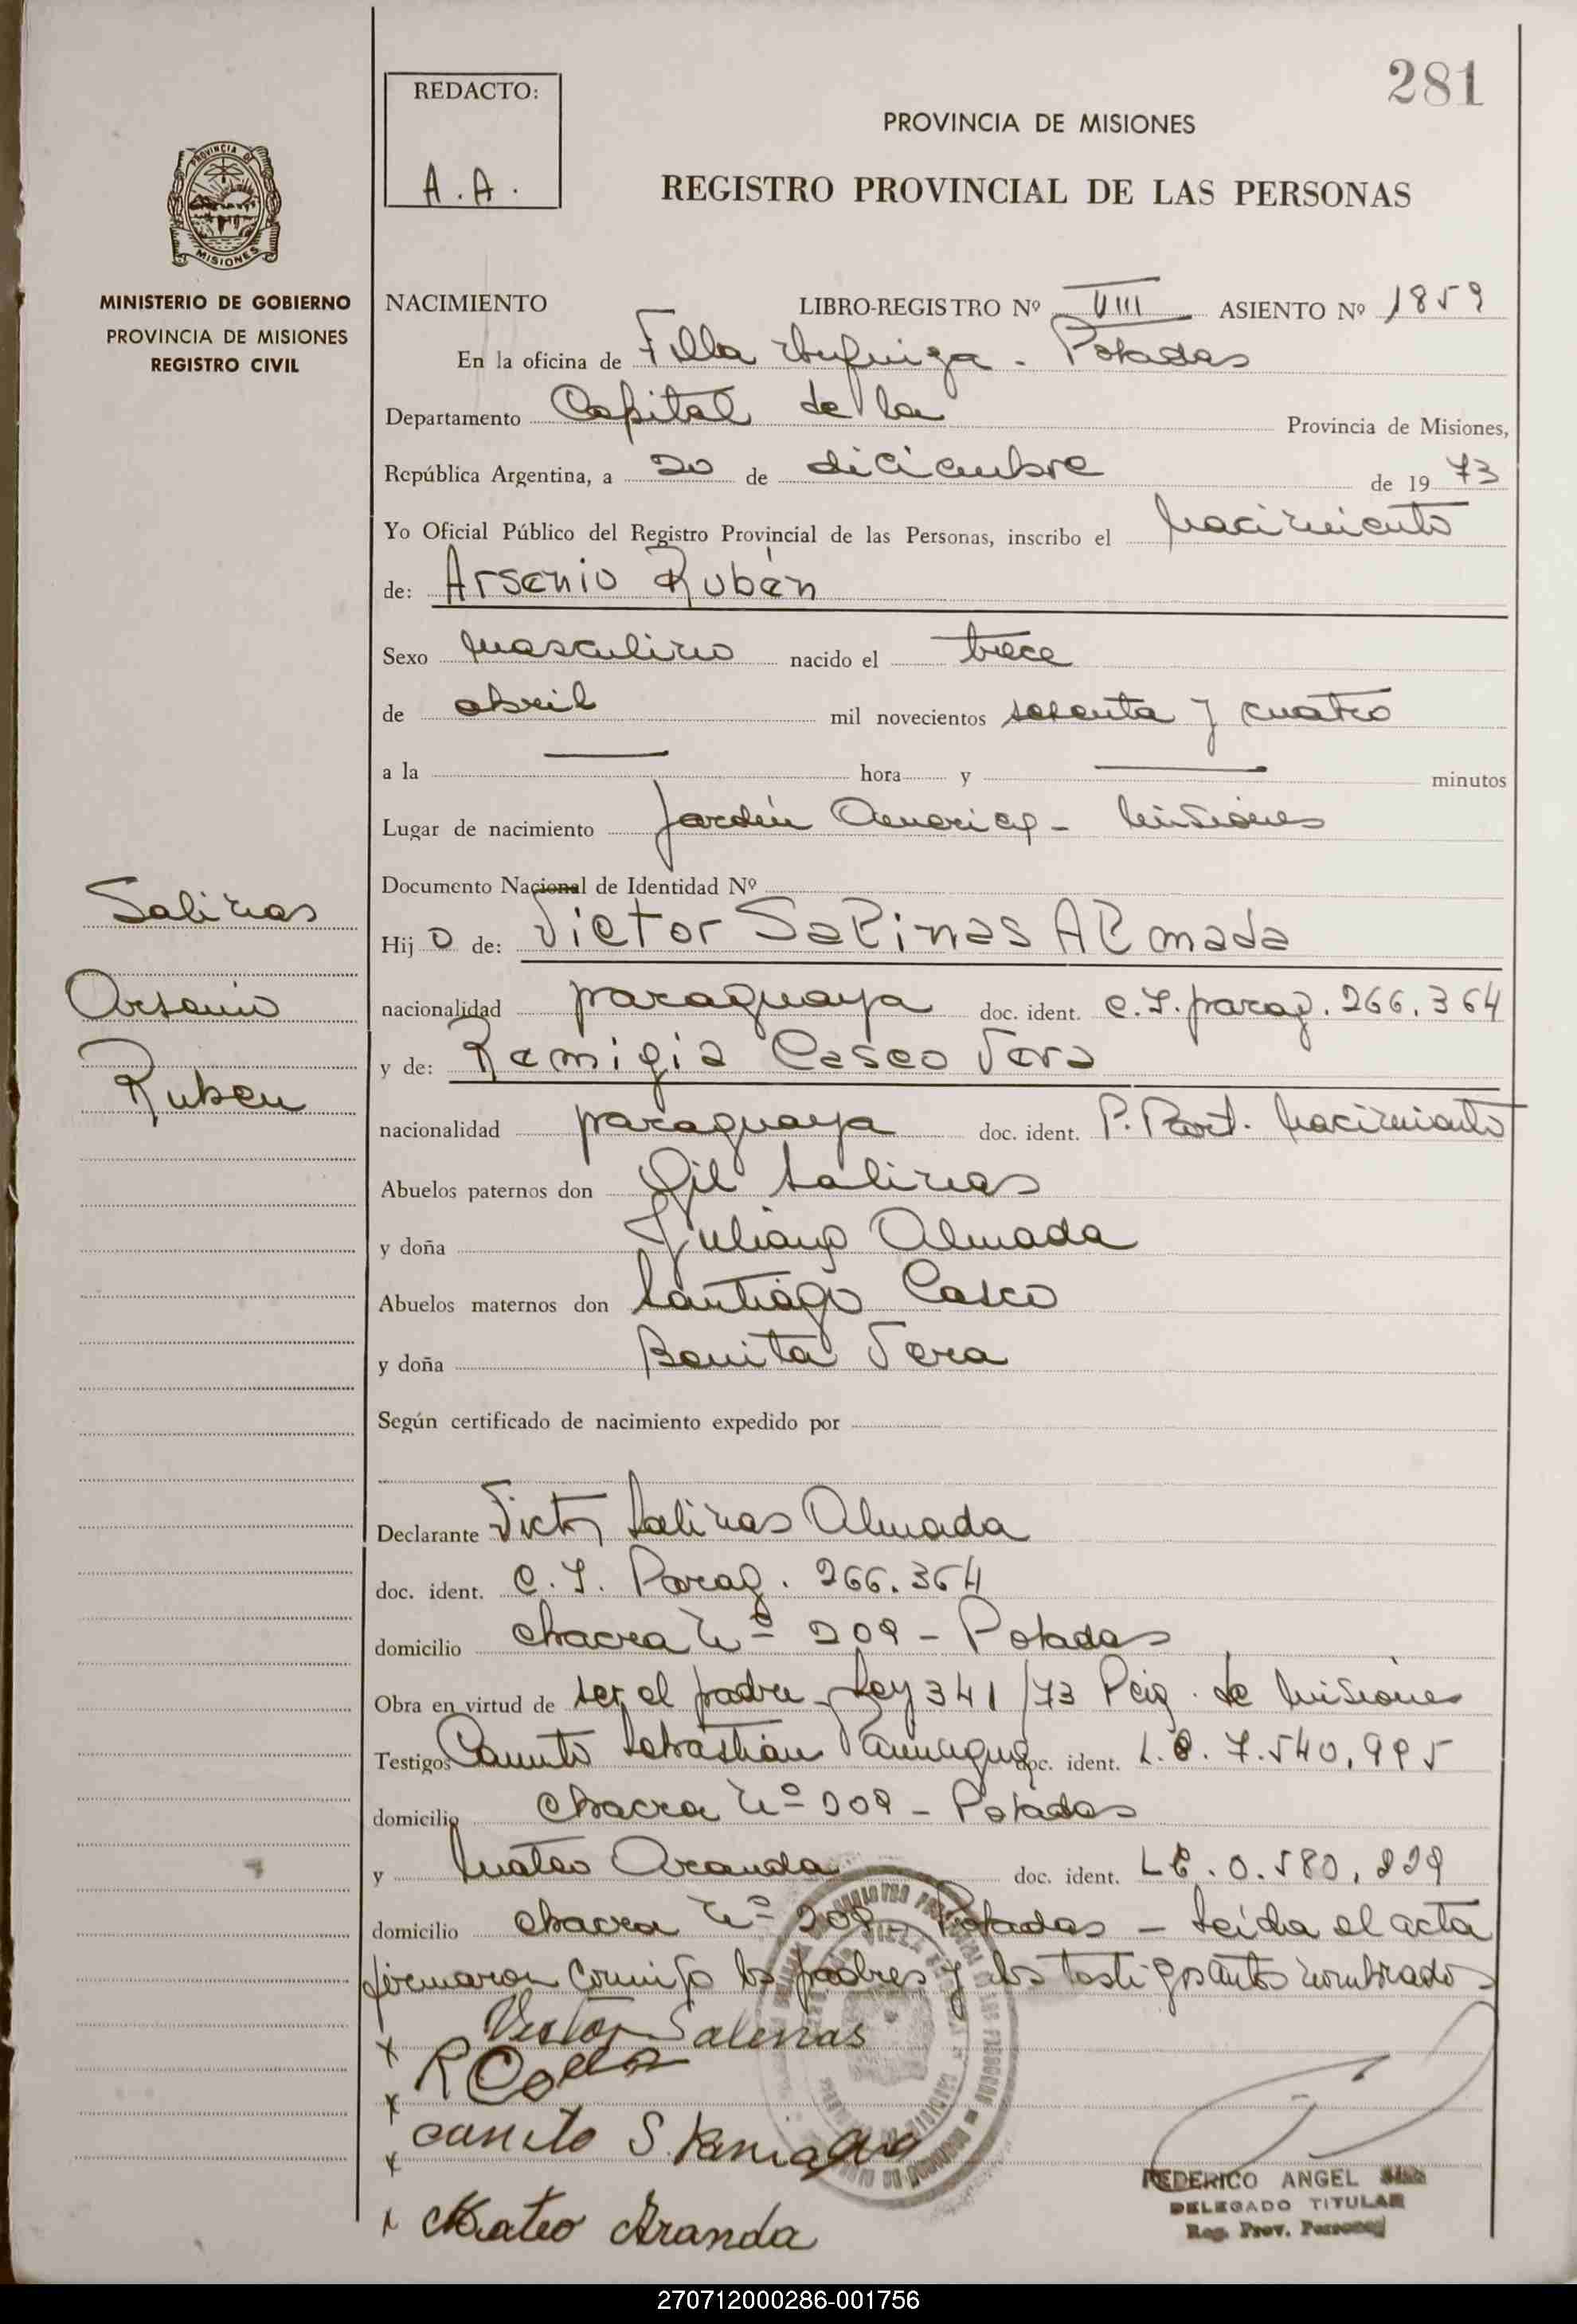 281
REDACTO:
A.A.
PROVINCIA DE MISIONES
REGISTRO PROVINCIAL DE LAS PERSONAS
PROVINCIA DE
MISIONES
MINISTERIO DE GOBIERNO
PROVINCIA DE MISIONES
REGISTRO CIVIL
NACIMIENTO LIBRO-REGISTRO Nº VIII ASIENTO Nº 1859
En la oficina de Villa Urquiza - Posadas
Departamento Capital de la Provincia de Misiones,
República Argentina, a 20 de diciembre de 1973
Yo Oficial Público del Registro Provincial de las Personas, inscribo el nacimiento
de: Arsenio Rubén
Sexo masculino nacido el trece
de abril mil novecientos sesenta y cuatro
a la hora y minutos
Lugar de nacimiento Jardín America - Misiones
Documento Nacional de Identidad Nº
Salinas
Arsenio
Ruben
Hijo de: Victor Salinas Almada
nacionalidad paraguaya doc. ident. C.I. parag. 266.364
y de: Remigia Casco Vera
nacionalidad paraguaya doc. ident. P. Part. Nacimiento
Abuelos paternos don Gil Salinas
y doña Juliana Almada
Abuelos maternos don Santiago Casco
y doña Benita Vera
Según certificado de nacimiento expedido por
Declarante Victor Salinas Almada
doc. ident. C.I. Parag. 266.364
domicilio chacra Nº 209 - Posadas
Obra en virtud de ser el padre - Ley 341/73 Pcia. de Misiones
Testigos Canuto Sebastian doc. ident. L.E. 7.540.995
domicilio chacra Nº 209 - Posadas
y Mateo Aranda doc. ident. L.E. 0.580,
domicilio chacra Nº 209 - Posadas - Leida el acta
firmaron conmigo los padres y los testigos antes nombrados
x Victor Salinas
x R
x canuto S.
x Mateo Aranda
FEDERICO ANGEL
DELEGADO TITULAR
Reg. Prov. Personas
270712000286-001756